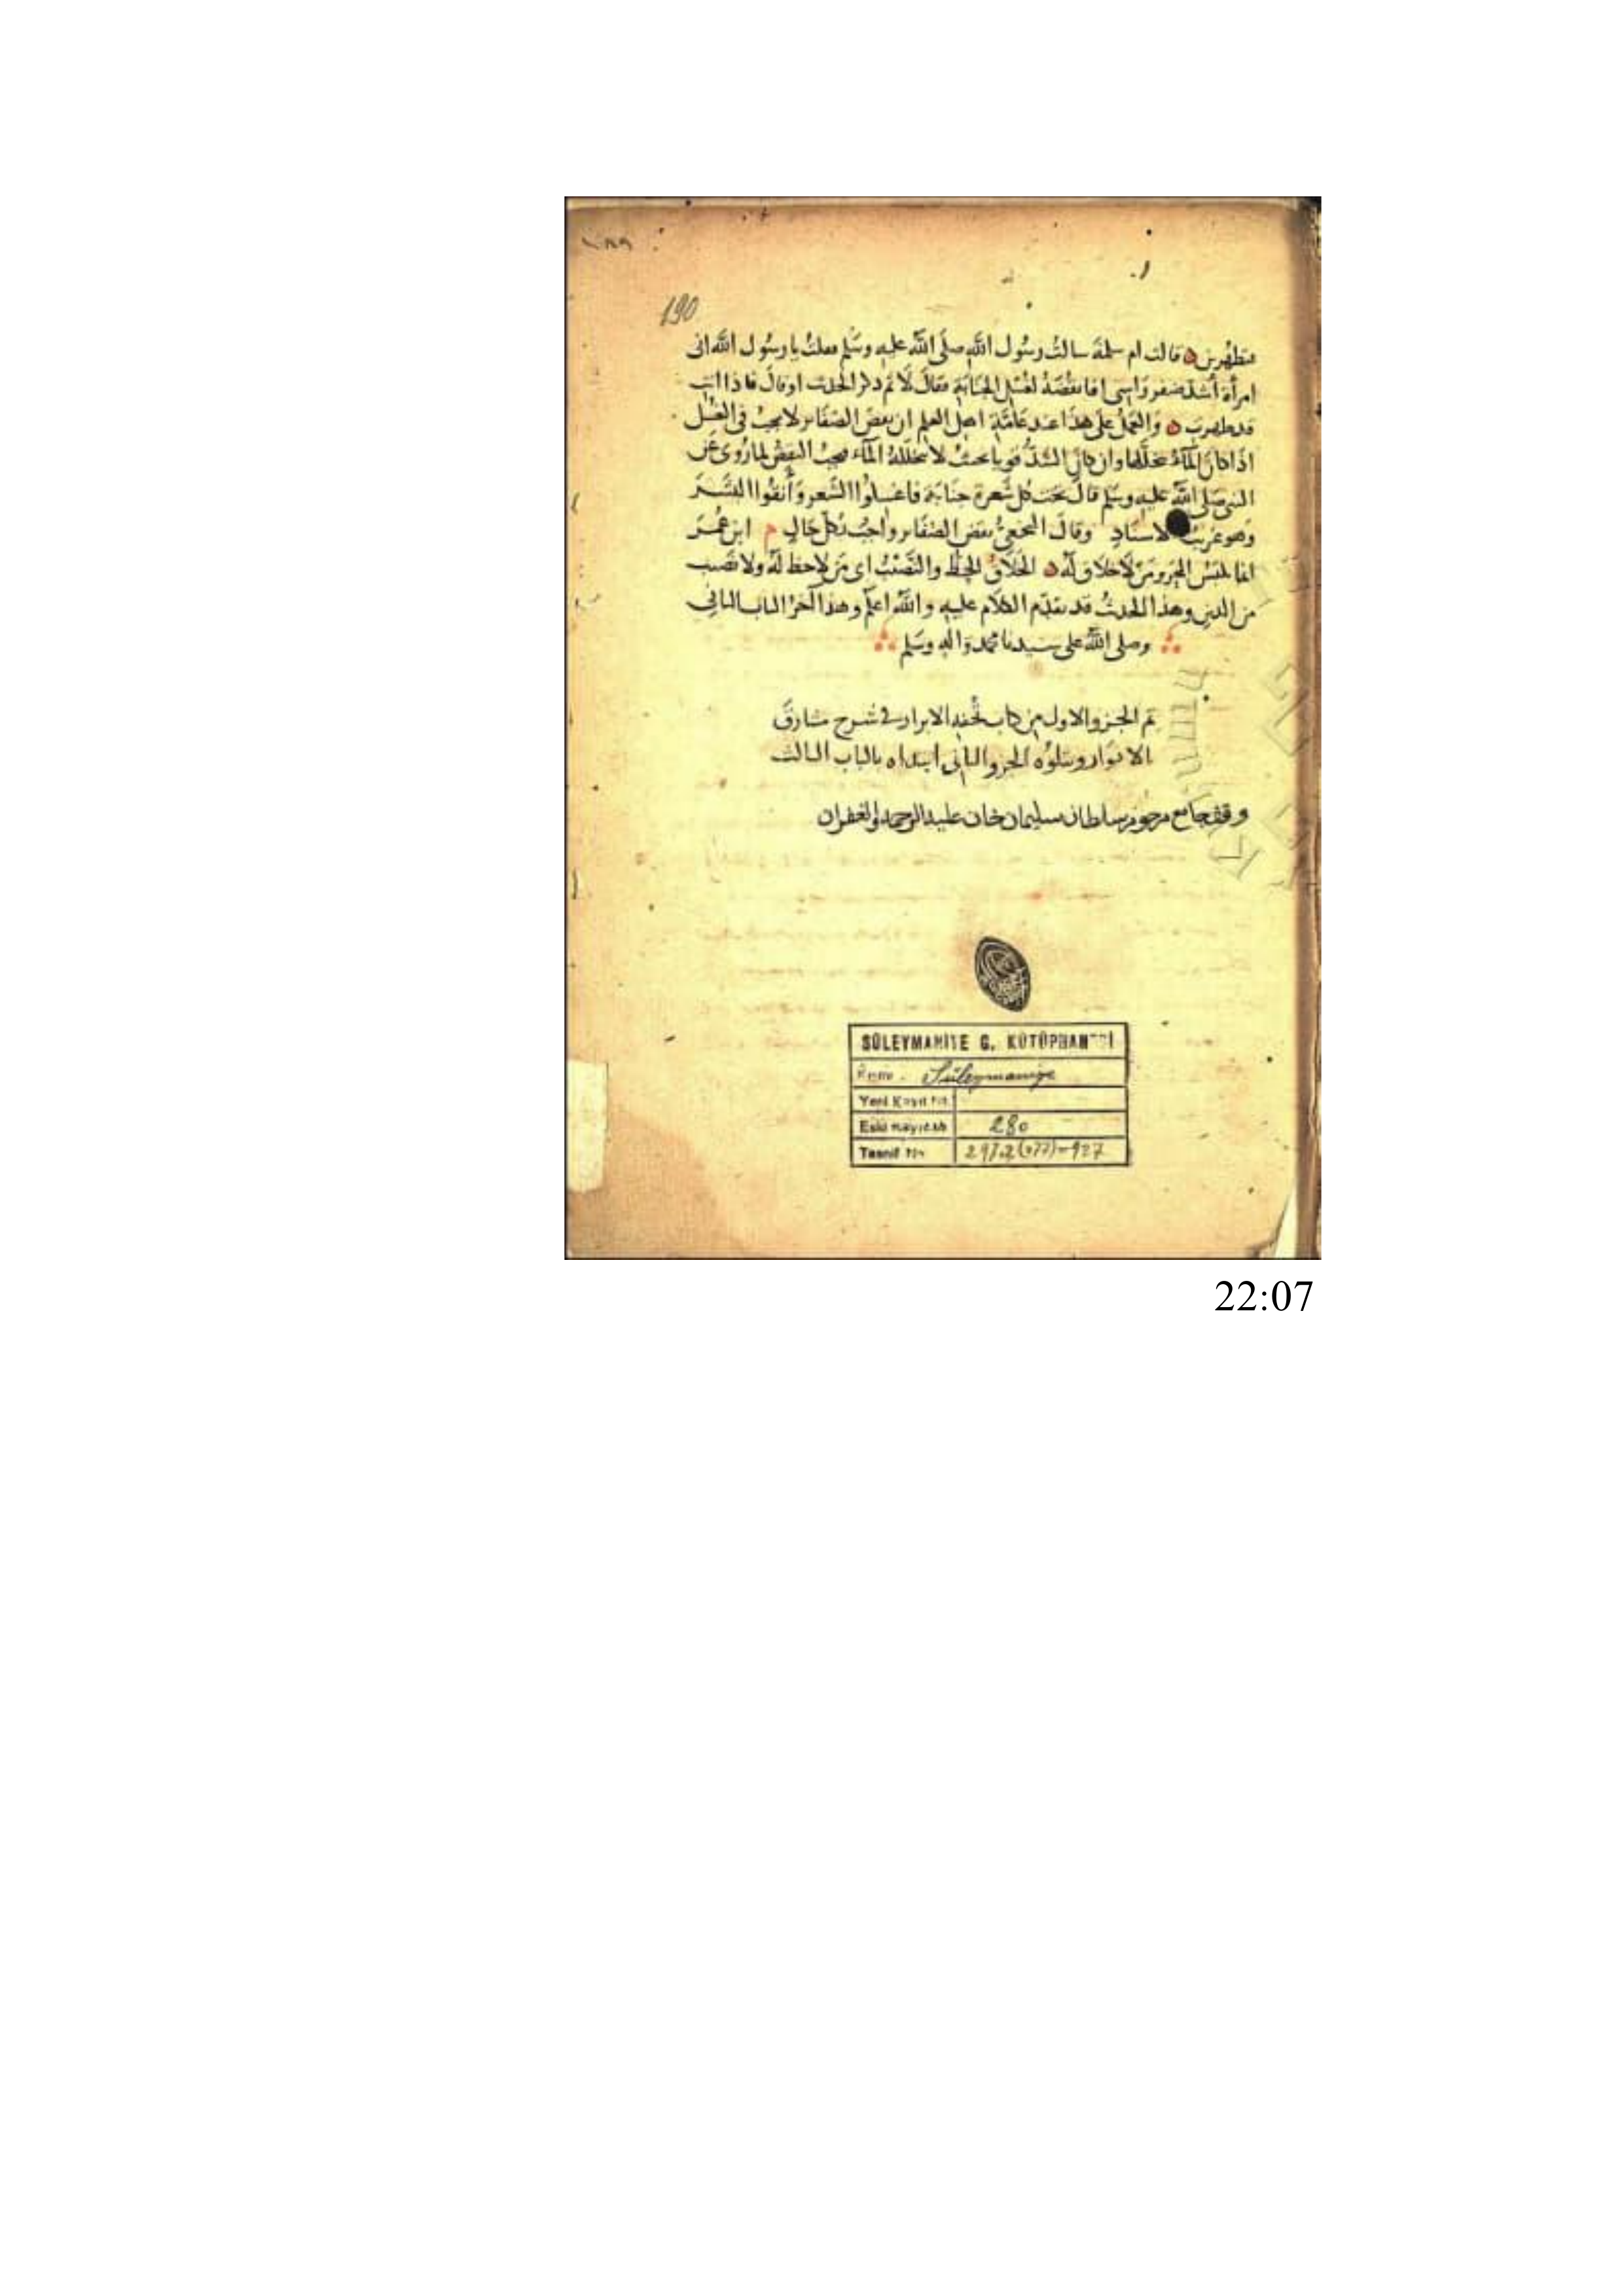 ١٨٩
190
فتطهرين قالت ام سلمة سالت رسول الله صلى الله عليه وسلم فقلت يا رسول الله انى
امرأة أشد ضفر رأسى افانقضه لغسل الجنابة فقال لا ثم ذكر الحديث او قال فاذا انت
قد طهرت والعمل على هذا عند عامة اهل العلم ان نقض الضفائر لا يجب فى الغسل
اذا كان الماء يتخللها وان كان الشد قويا بحيث لا يتخلله الماء فيجب النقض لما روى عن
النبى صلى الله عليه وسلم قال تحت كل شعرة جنابة فاغسلوا الشعر وأنقوا البشر
وهو غريب الاسناد وقال النخعى نقض الضفائر واجب بكل حال م ابن عمر
انما يلبس الحرير من لا خلاق له الخلاق الحظ والنصيب اى من لا حظ له ولا نصيب
من الدين وهذا الحديث قد تقدم الكلام عليه والله اعلم وهذا آخر الباب الثانى
وصلى الله على سيدنا محمد واله وسلم
تم الجزو الاول من كتاب تحفة الابرار فى شرح مشارق
الانوار ويتلوه الجزو الثانى ابتداه بالباب الثالث
وقف جامع مرحوم سلطان سليمان خان عليه الرحمه والغفران
SÜLEYMANİYE G. KÜTÜPHANESİ
Kısmı . Süleymaniye
Yeni Kayıt No.
Eski Kayıt No 280
Tasnif No 297.2(077)=927
22:07